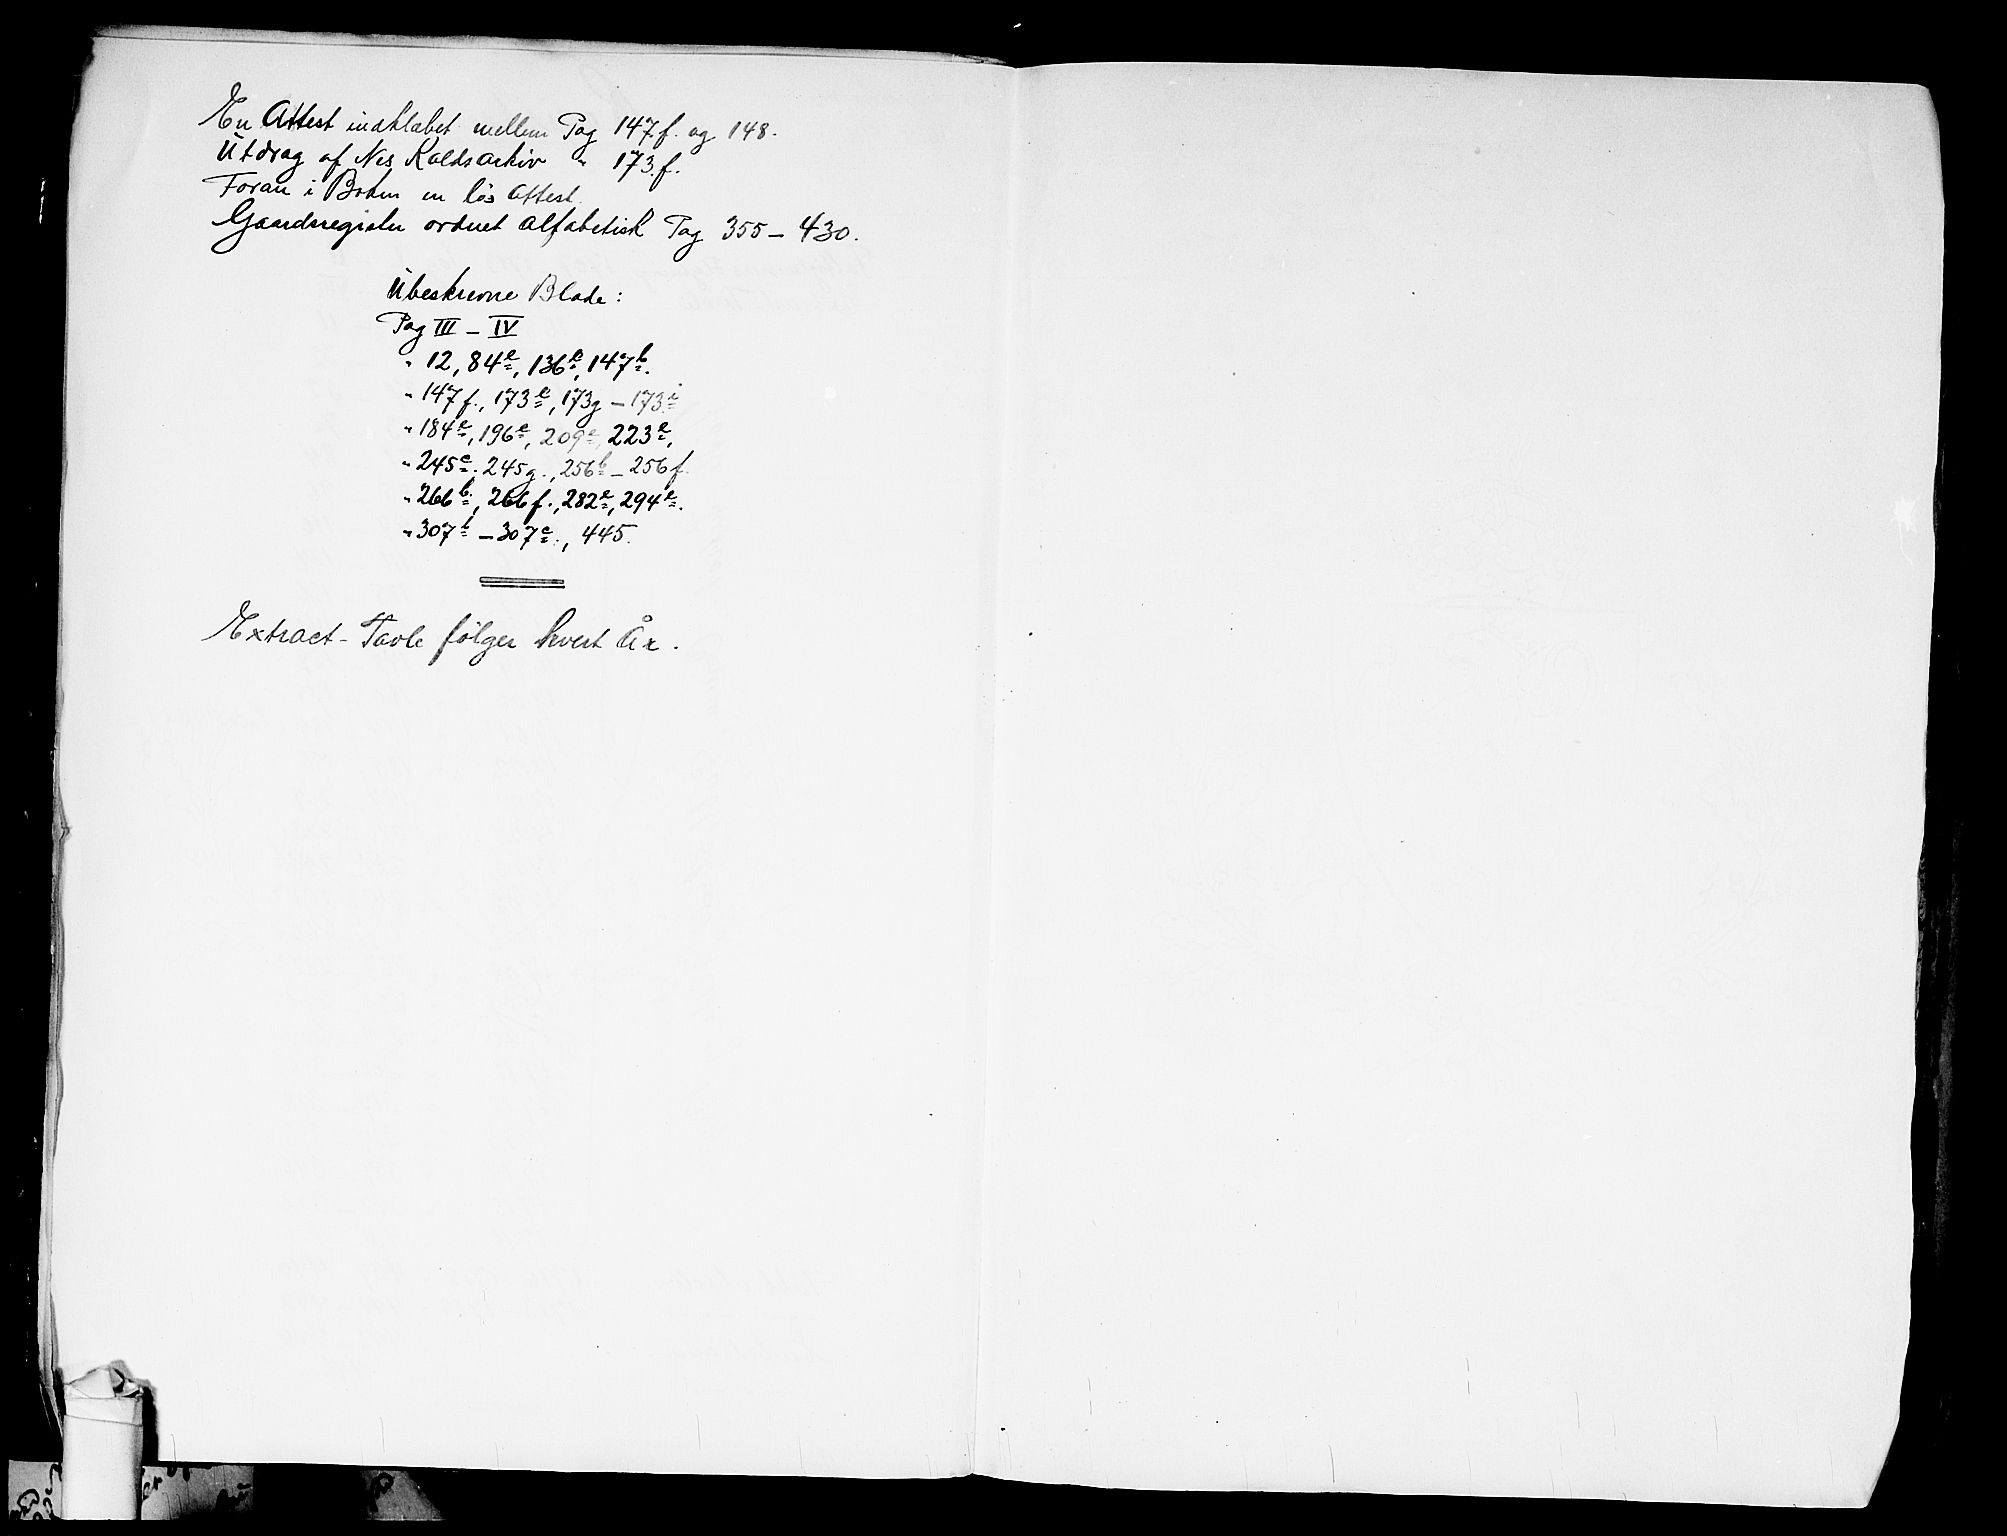 En Attest indklæbet mellem Pag 147.f. og 148.
Utdrag af Nes Kaldsarkiv " 173.f.
Foran i Boken en løs Attest.
Gaardsregister ordnet alfabetisk Pag 355 – 430.
Ubeskrevne Blade:
Pag III – IV
" 12, 84e, 136e, 147b.
" 147f., 173e, 173g – 173i
" 184e, 196e, 209e, 223e,
" 245e. 245g., 256b – 256f.
" 266b., 266f., 282e, 294e.
" 307b – 307e., 445.
Extract-Tavle følger hvert År.